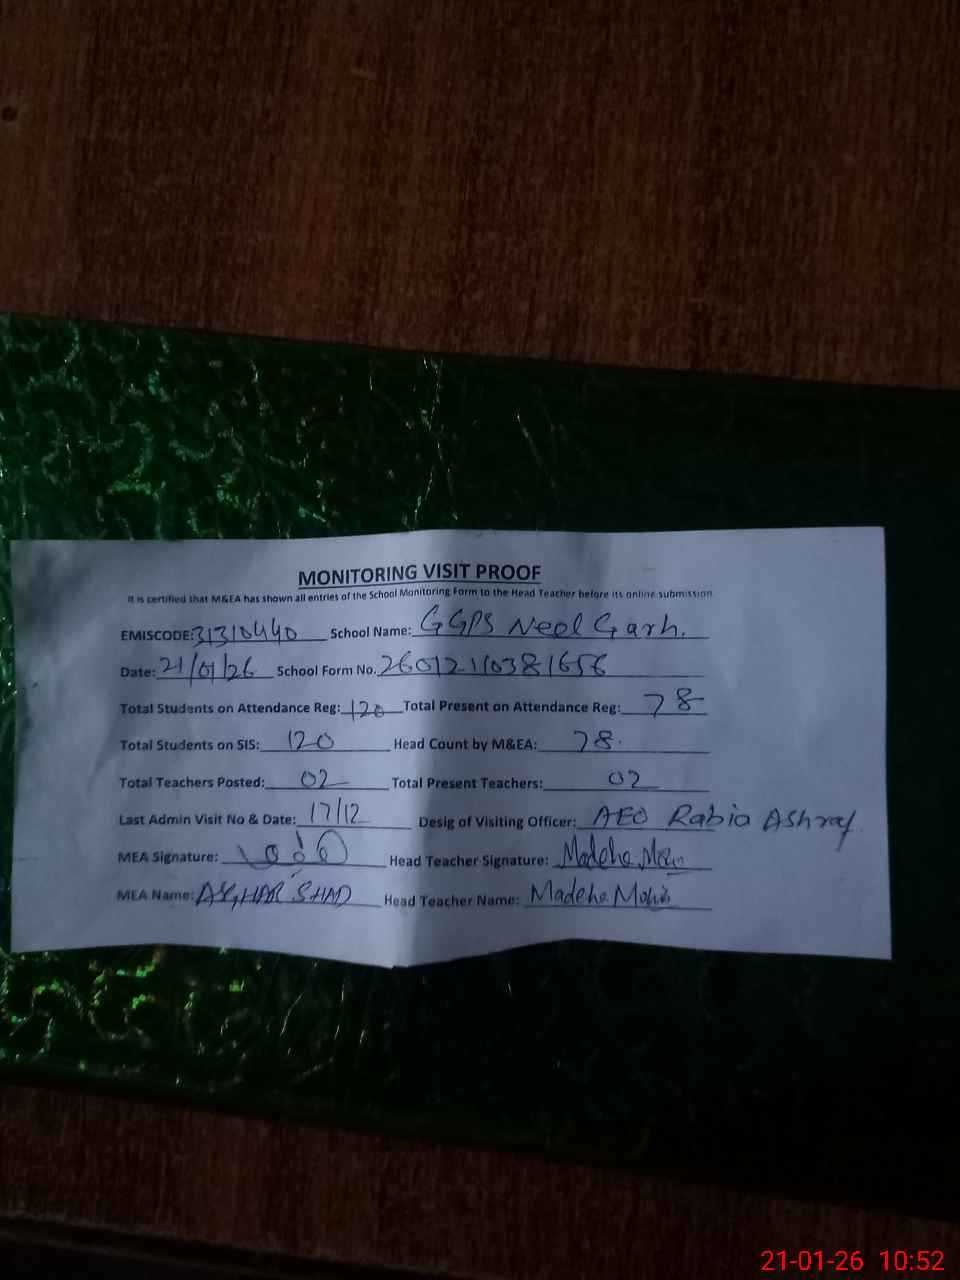 MONITORING VISIT PROOF
It is certified that M&EA has shown all entries of the School Monitoring Form to the Head Teacher before its online submission.
EMISCODE: 31310440 School Name: GGPS Neel Garh.
Date: 21/01/26 School Form No. 26012110381656
Total Students on Attendance Reg: 120 Total Present on Attendance Reg: 78
Total Students on SIS: 120 Head Count by M&EA: 78.
Total Teachers Posted: 02 Total Present Teachers: 02
Last Admin Visit No & Date: 17/12 Desig of Visiting Officer: AEO Rabia Ashraf.
MEA Signature: Head Teacher Signature: Madeha
MEA Name: Head Teacher Name: Madeha
21-01-26 10:52